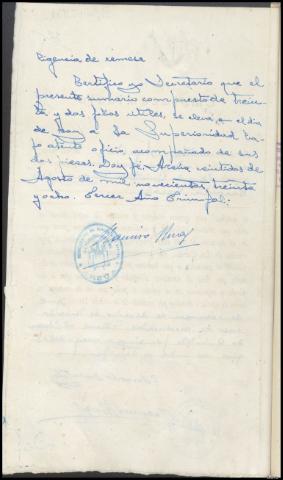 Diligencia de remesa
Certifico yo Secretario que el
presente sumario compuesto de trein-
ta y dos folios utiles, se eleva en el dia
de hoy a la Superioridad ba-
jo atento oficio, acompañado de sus
dos piezas. Doy fé. Alcañiz veintidos de
Agosto de mil novecientos treinta
y ocho. Tercer Año Triunfal:
Ruiz